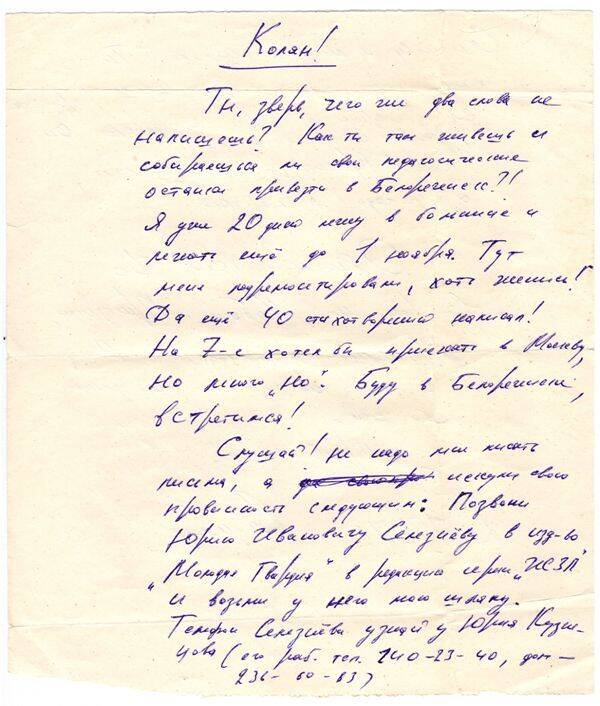 Колян!
Ты, зверь, чего же два слова не
напишешь? Как ты там живешь и
собираешься ли свои педагогические
останки привезти в Белореченск?!
Я уже 20 дней лежу в больнице и
лежать ещё до 1 ноября. Тут
меня подремонтировали, хоть женись!
Да ещё 40 стихотворений написал!
На 7-е хотел бы приехать в Москву,
но много „но". Буду в Белореченске,
встретимся!
Слушай! Не надо мне писать
письма, а искупи свою
провинность следующим: Позвони
Юрию Ивановичу Селезнёву в изд-во
„Молодая Гвардия" в редакцию серии „ЖЗЛ"
и возьми у него мою шляпу.
Телефон Селезнёва узнай у Юрия Кузне-
цова (его раб. тел. 240-23-40, дом –
236-60-83)